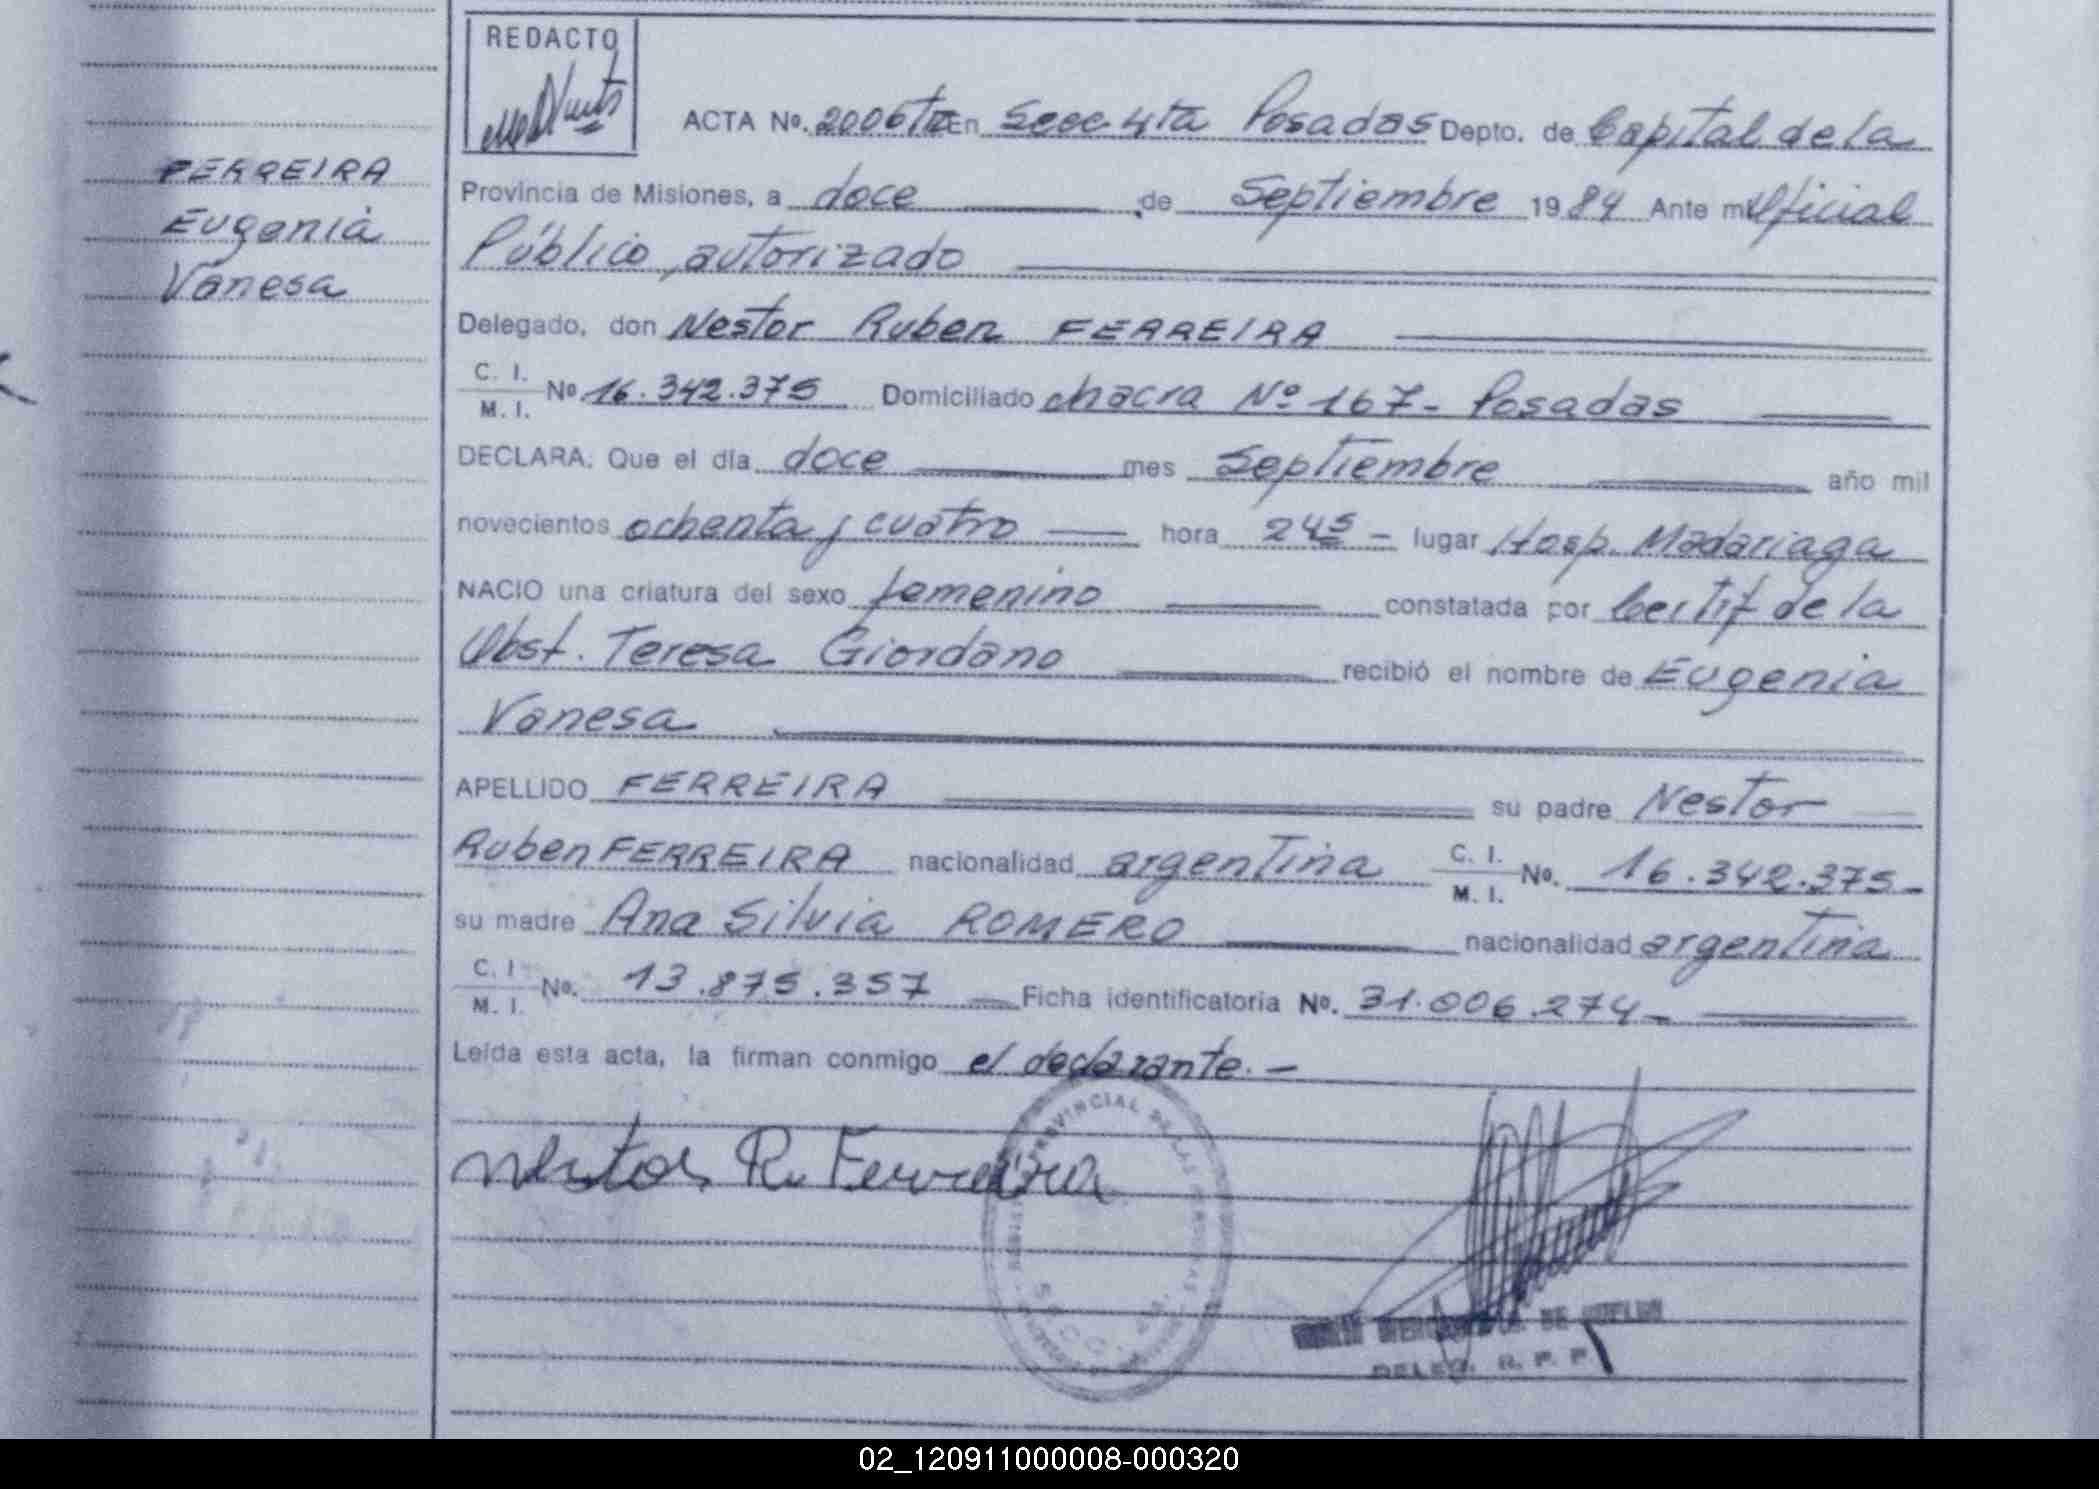 REDACTO
ACTA Nº. 2006 En Secc 4ta Posadas Depto. de Capital de la
FERREIRA
Eugenia
Vanesa
Provincia de Misiones, a doce de Septiembre 1984 Ante mi Oficial
Público autorizado
Delegado, don Nestor Ruben FERREIRA
C. I.
M. I. Nº 16.342.375 Domiciliado chacra Nº 167- Posadas
DECLARA: Que el día doce mes Septiembre año mil
novecientos ochenta y cuatro hora 2 45 - lugar Hosp. Madariaga
NACIO una criatura del sexo femenino constatada por Certif de la
Obst. Teresa Giordano recibió el nombre de Eugenia
Vanesa
APELLIDO FERREIRA su padre Nestor
Ruben FERREIRA nacionalidad argentina C. I. M. I. No. 16.342.375-
su madre Ana Silvia ROMERO nacionalidad argentina
C. I M. I. No. 13.875.357 Ficha identificatoria No. 31.006.274-
Leída esta acta, la firman conmigo el declarante.-
Nestor R. Ferreira
PROVINCIAL DE LAS PERSONAS
SECC.
DELEG. R. P. P.
02_120911000008-000320